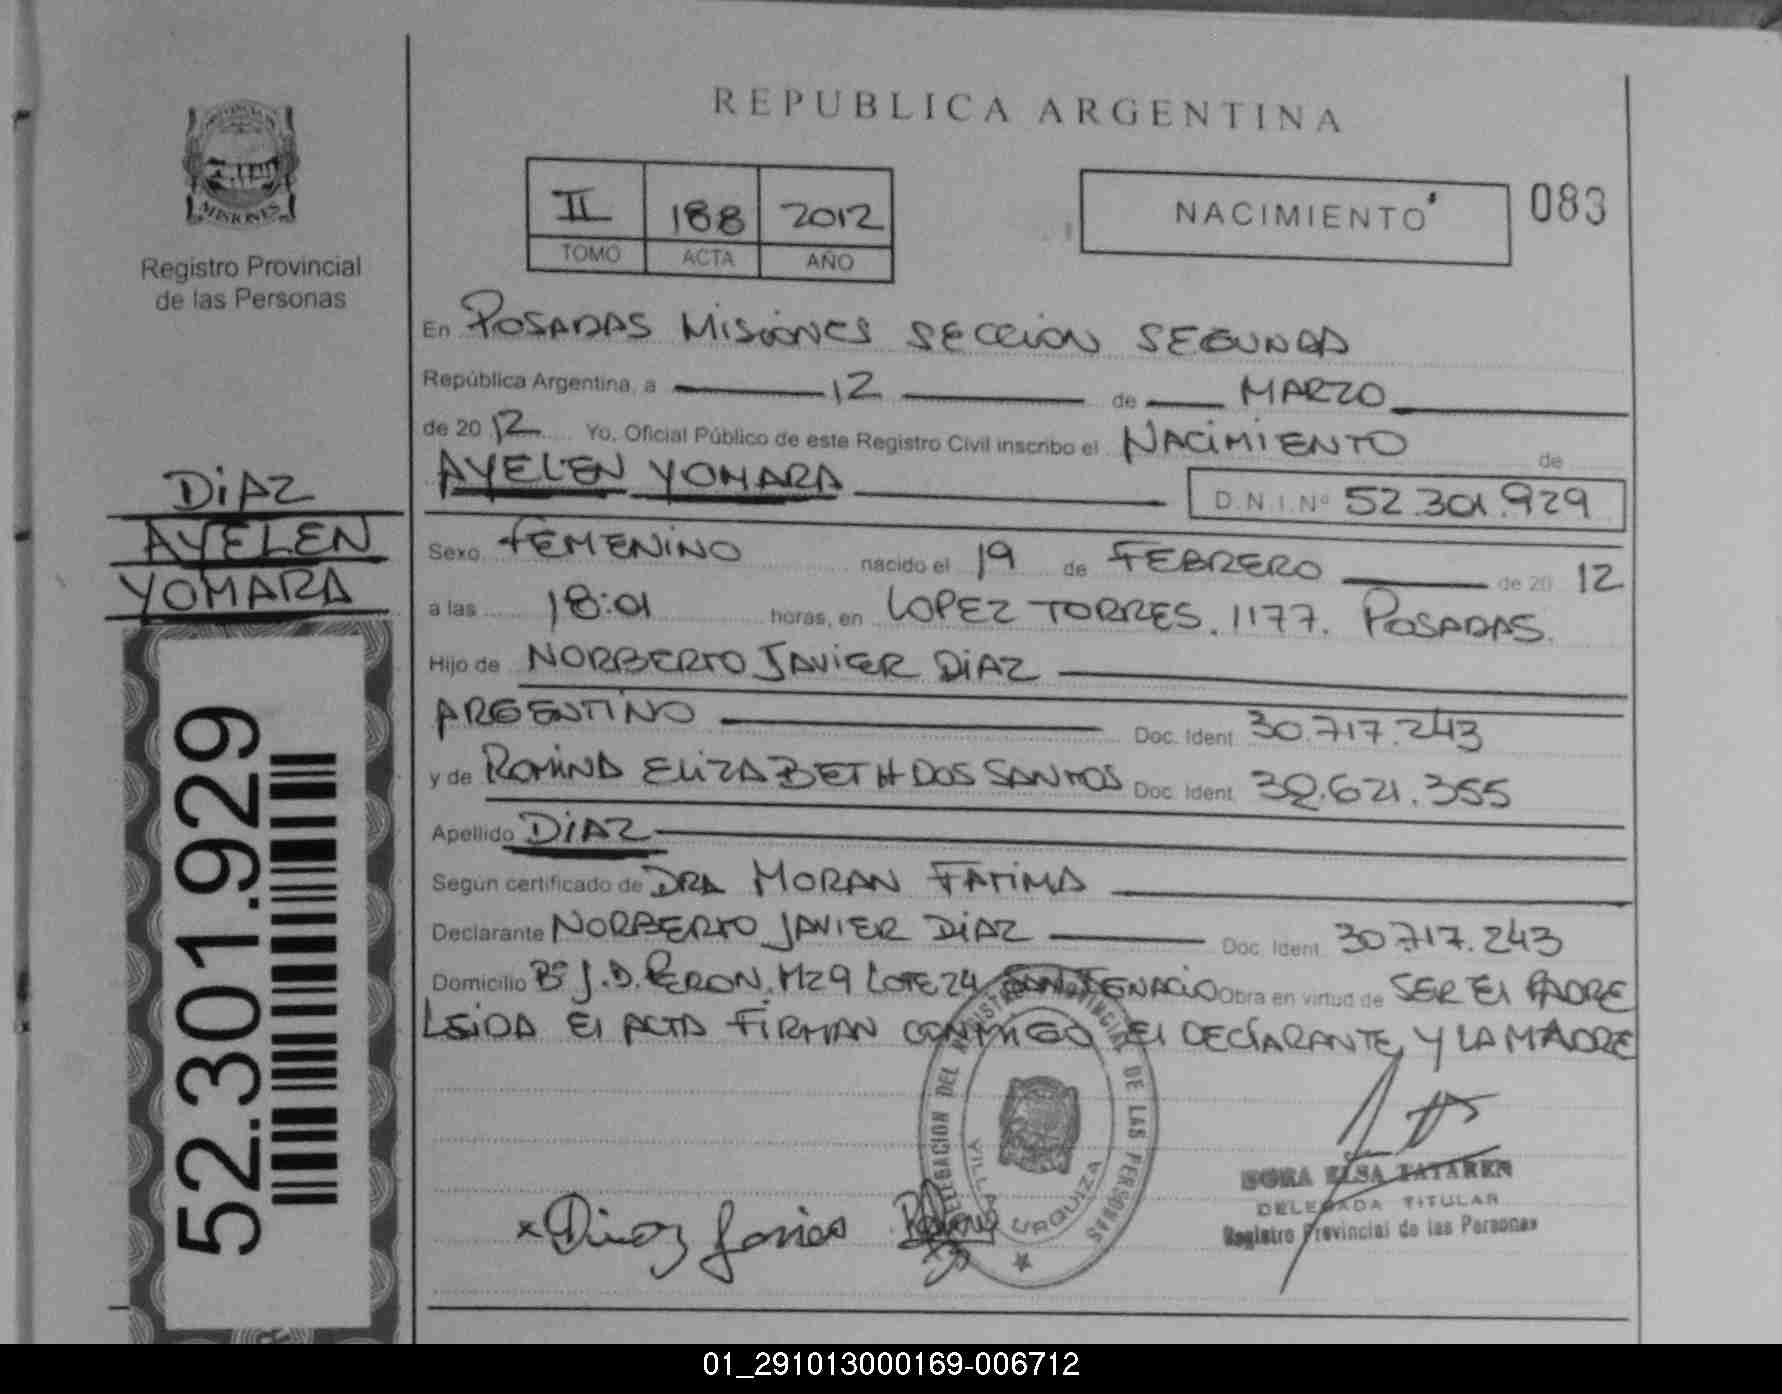 REPUBLICA ARGENTINA
II 188 2012
TOMO ACTA AÑO
NACIMIENTO
083
MISIONES
Registro Provincial
de las Personas
En POSADAS MISIONES SECCION SEGUNDA
República Argentina, a 12 de MARZO
de 20 12 Yo, Oficial Público de este Registro Civil inscribo el NACIMIENTO de
AYELEN YOMARA D.N.I.Nº 52.301.929
DIAZ
AYELEN
YOMARA
Sexo FEMENINO nacido el 19 de FEBRERO de 20 12
a las 18:01 horas, en LOPEZ TORRES. 1177. POSADAS.
Hijo de NORBERTO JAVIER DIAZ
ARGENTINO Doc. Ident. 30.717.243
y de ROMINA ELIZABETH DOS SANTOS Doc. Ident. 32.621.355
Apellido DIAZ
Según certificado de DRA MORAN FATIMA
Declarante NORBERTO JAVIER DIAZ Doc. Ident. 30.717.243
Domicilio Bº J.D. PERON. MZ9 LOTE 24 SAN IGNACIO Obra en virtud de SER EL PADRE
LEIDA EL ACTA FIRMAN CONMIGO EL DECLARANTE Y LA MADRE
52.301.929
DELEGACION DEL REGISTRO PROVINCIAL DE LAS PERSONAS
VILLA URQUIZA
x Diaz Javier
DORA ELSA TATAREN
DELEGADA TITULAR
Registro Provincial de las Personas
01_291013000169-006712